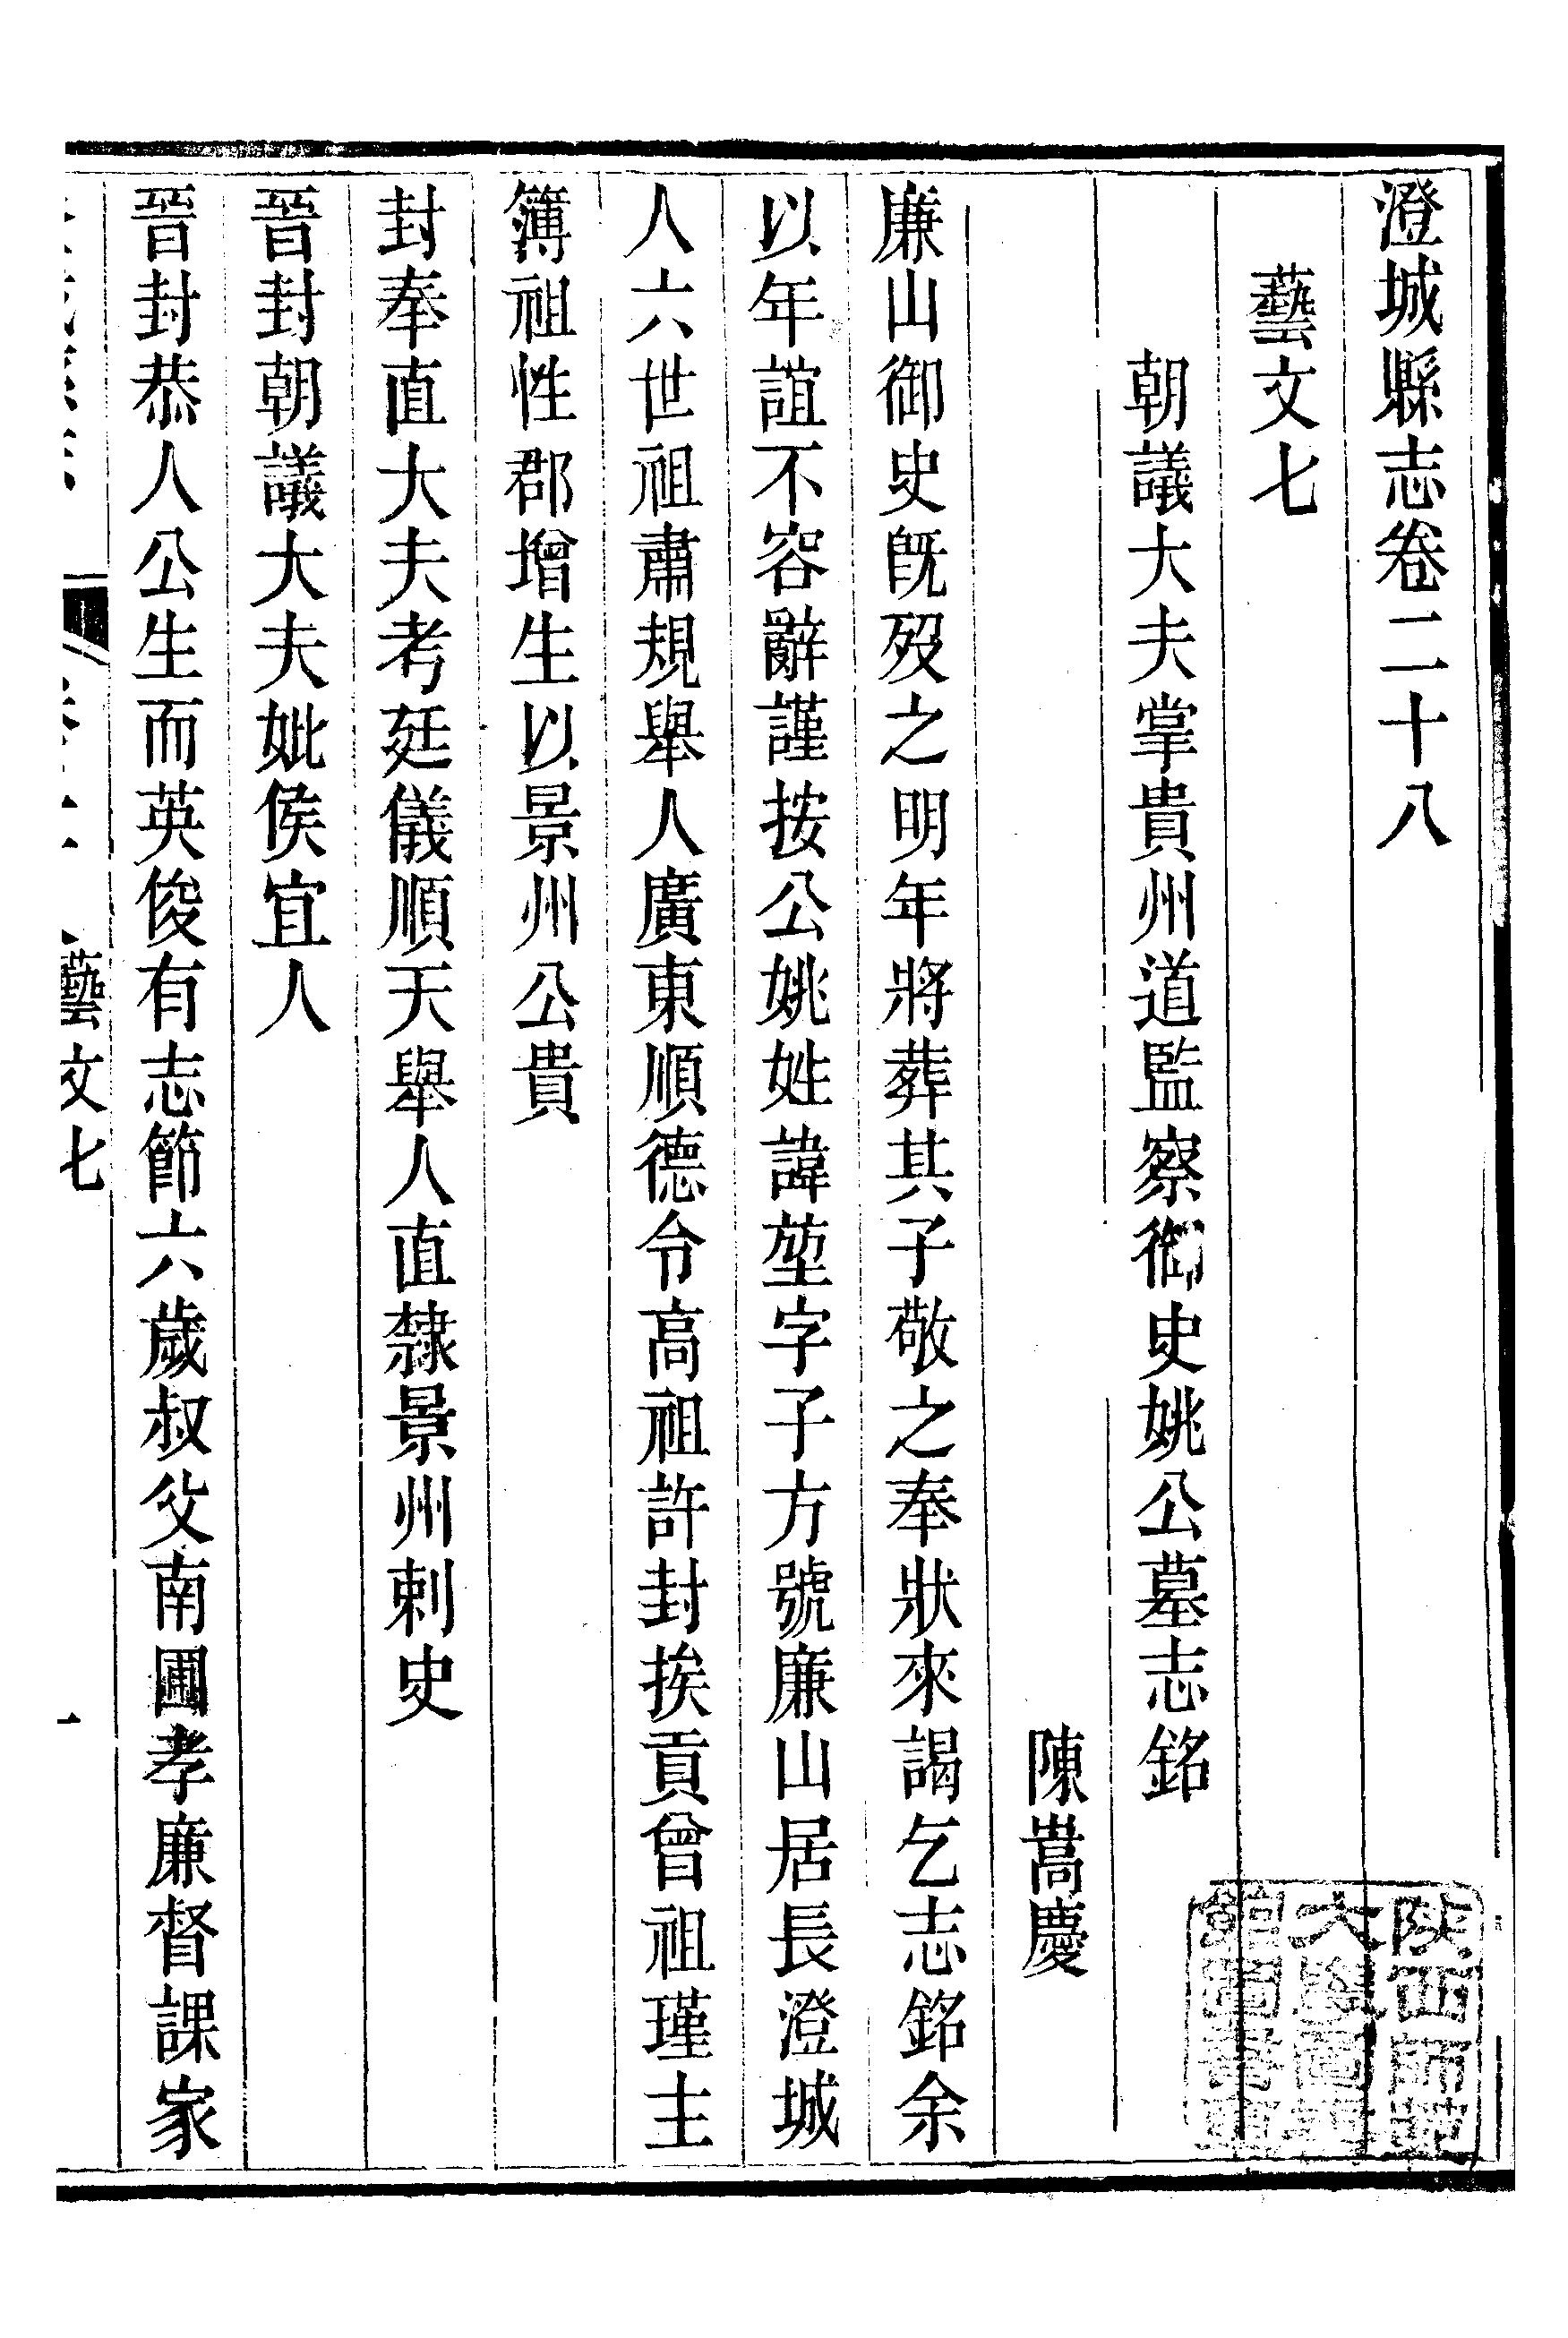 澄城縣志卷二十八
藝文七
朝議大夫掌貴州道監察御史姚公墓志銘
陳嵩慶
廉山御史旣歿之明年將葬其子敬之奉狀來謁乞志銘余
以年誼不容辭謹按公姚姓諱堃字子方號廉山居長澄城
人六世祖肅規舉人廣東順德令高祖許封挨貢曾祖瑾主
簿祖性郡增生以景州公貴
封奉直大夫考廷儀順天舉人直隸景州刺史
晉封朝議大夫妣侯宜人
晉封恭人公生而英俊有志節六歲叔父南圃孝廉督課家
藝文七
一
陝西師範
大學圖書
館圖書章